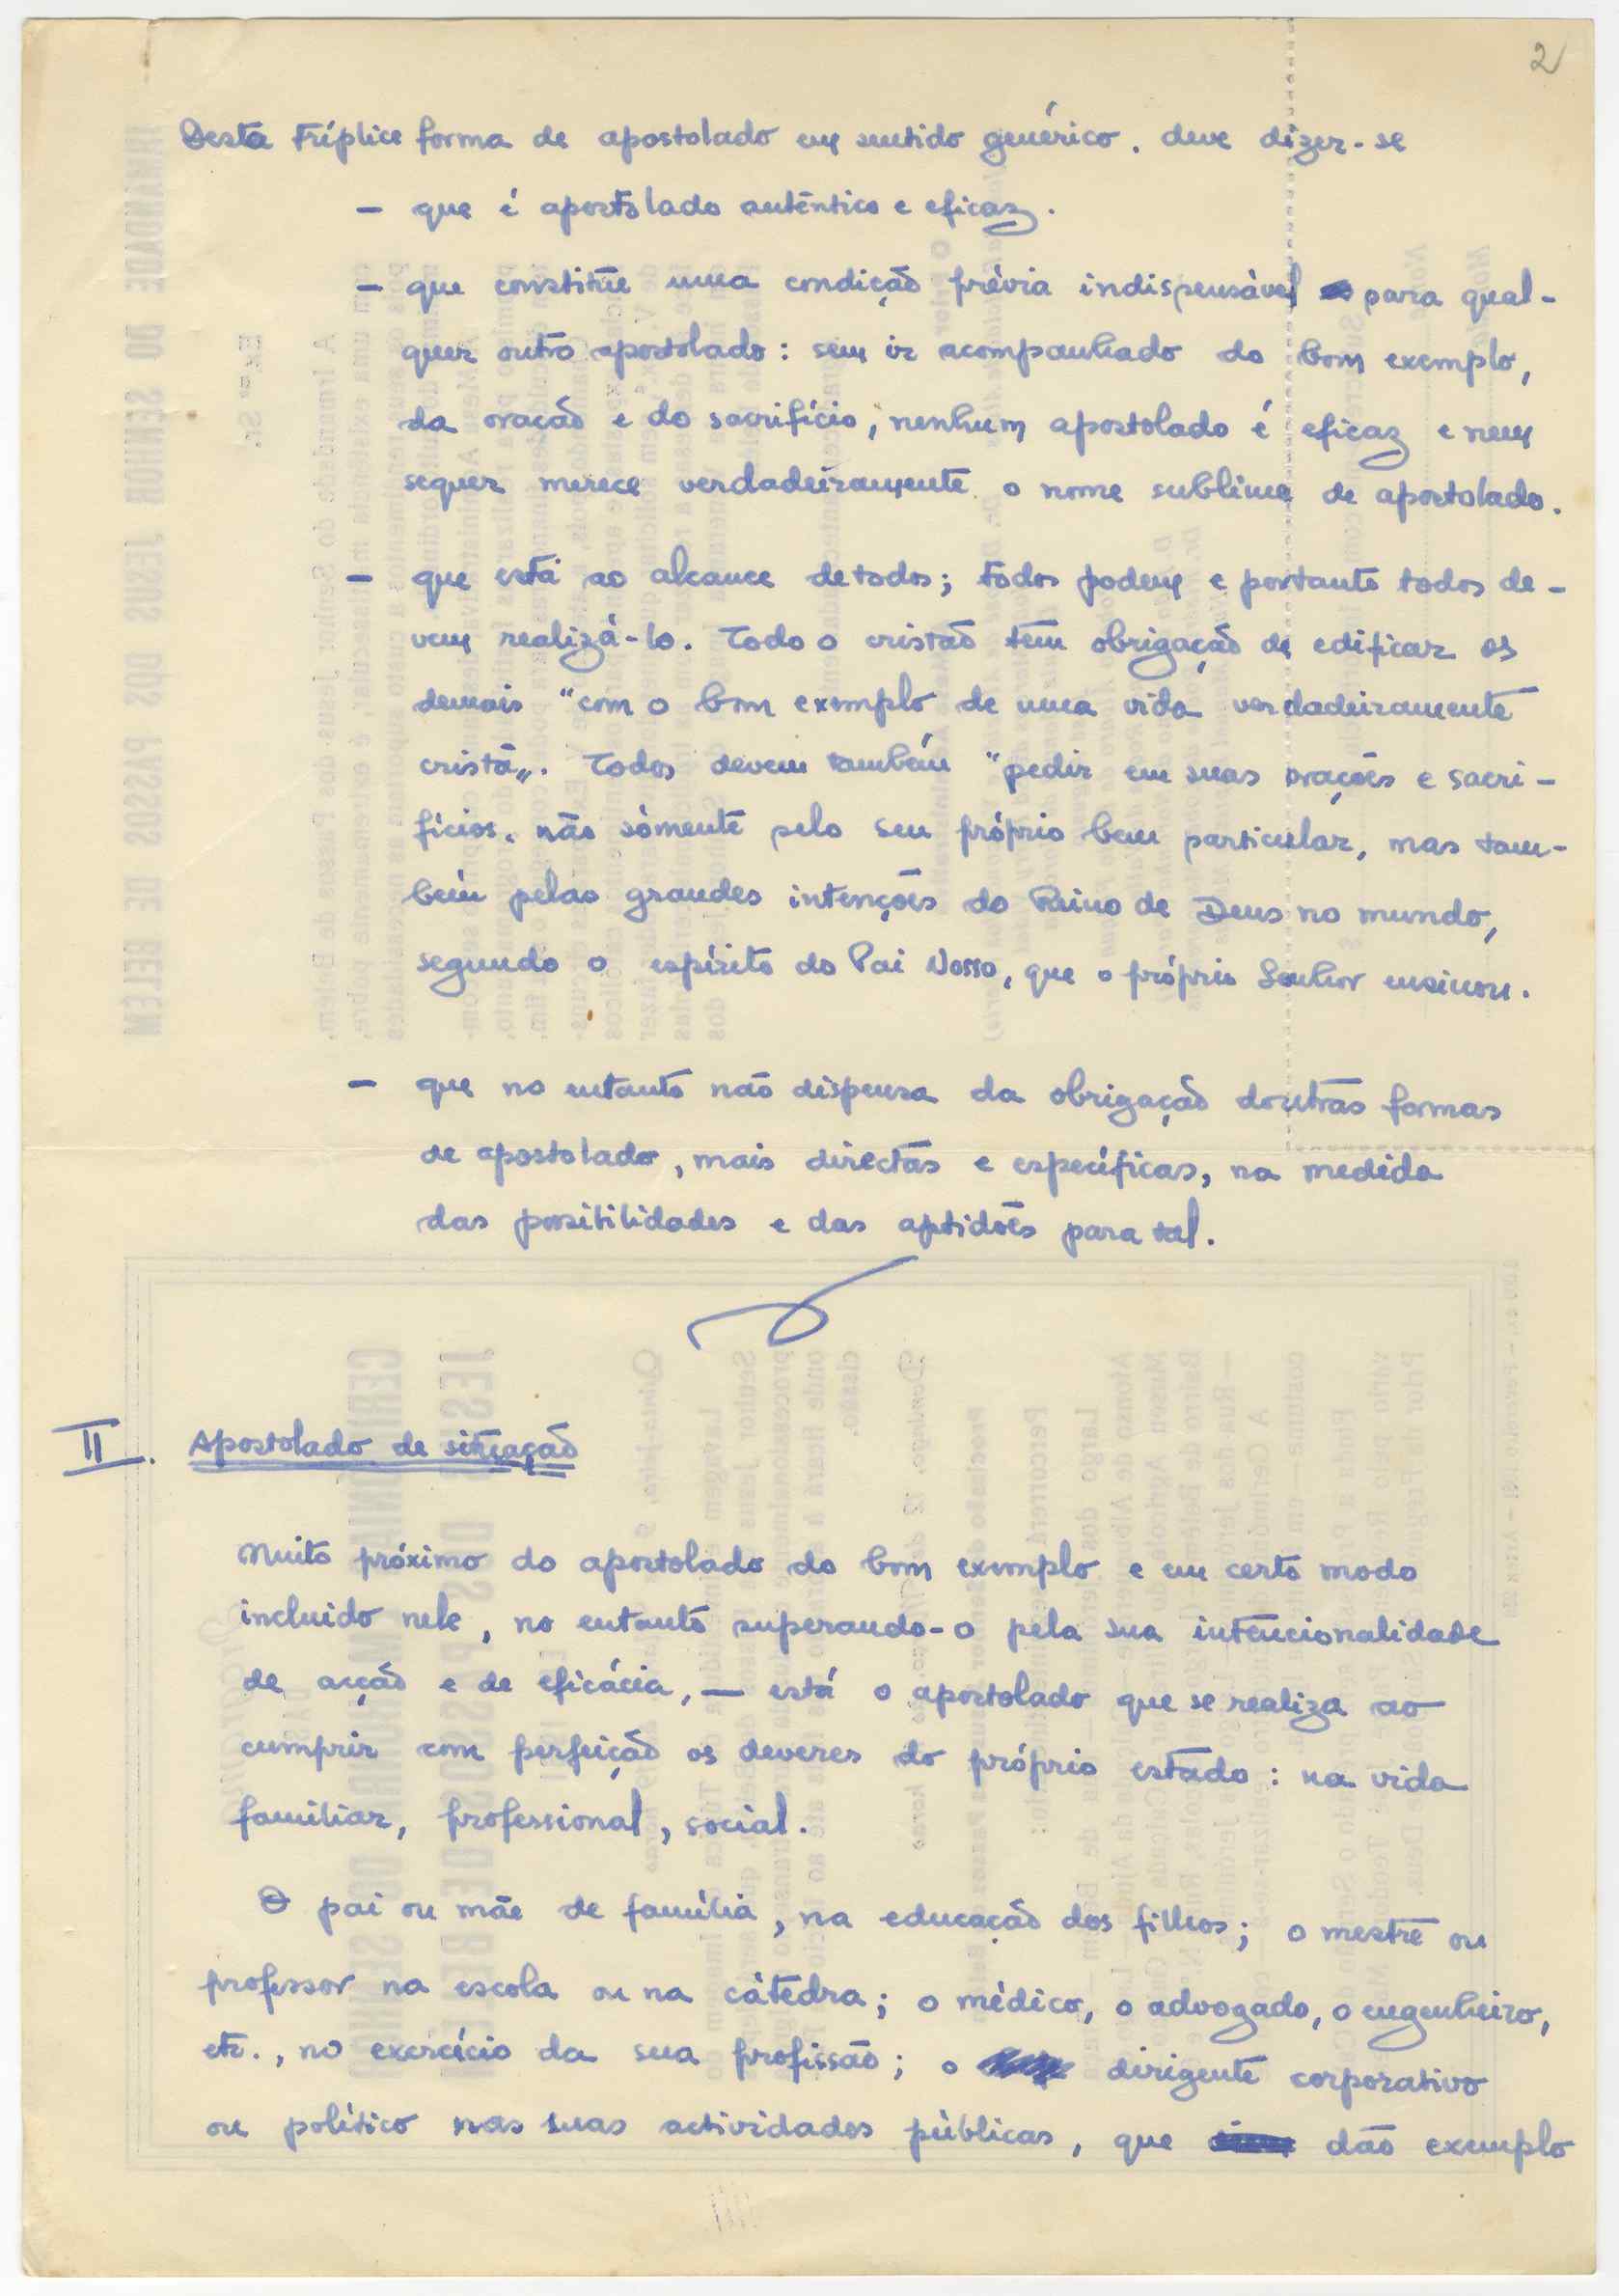 2
Desta tríplice forma de apostolado em sentido genérico. deve dizer-se
— que é apostolado autêntico e eficaz.
— que constitúe uma condição prévia indispensável para qual-
quer outro apostolado: sem ir acompanhado do bom exemplo,
da oração e do sacrifício, nenhum apostolado é eficaz e nem
sequer merece verdadeiramente o nome sublime de apostolado.
— que está ao alcance de todos; todos podem e portanto todos de-
vem realizá-lo. Todo o cristão tem obrigação de edificar os
demais "com o bom exemplo de uma vida verdadeiramente
cristã„. Todos devem também "pedir em suas orações e sacri-
fícios, não sòmente pelo seu próprio bem particular, mas tam-
bém pelas grandes intenções do Reino de Deus no mundo,
segundo o espírito do Pai Nosso, que o próprio Senhor ensinou.
— que no entanto não dispensa da obrigação doutras formas
de apostolado, mais directas e específicas, na medida
das possibilidades e das aptidões para tal.
II. Apostolado de situação
Muito próximo do apostolado do bom exemplo e em certo modo
incluido nele, no entanto superando-o pela sua intencionalidade
de acção e de eficácia, — está o apostolado que se realiza ao
cumprir com perfeição os deveres do próprio estado: na vida
familiar, professional, social.
O pai ou mãe de família, na educação dos filhos; o mestre ou
professor na escola ou na cátedra; o médico, o advogado, o engenheiro,
etc., no exercício da sua profissão; o dirigente corporativo
ou político nas suas actividades públicas, que dão exemplo